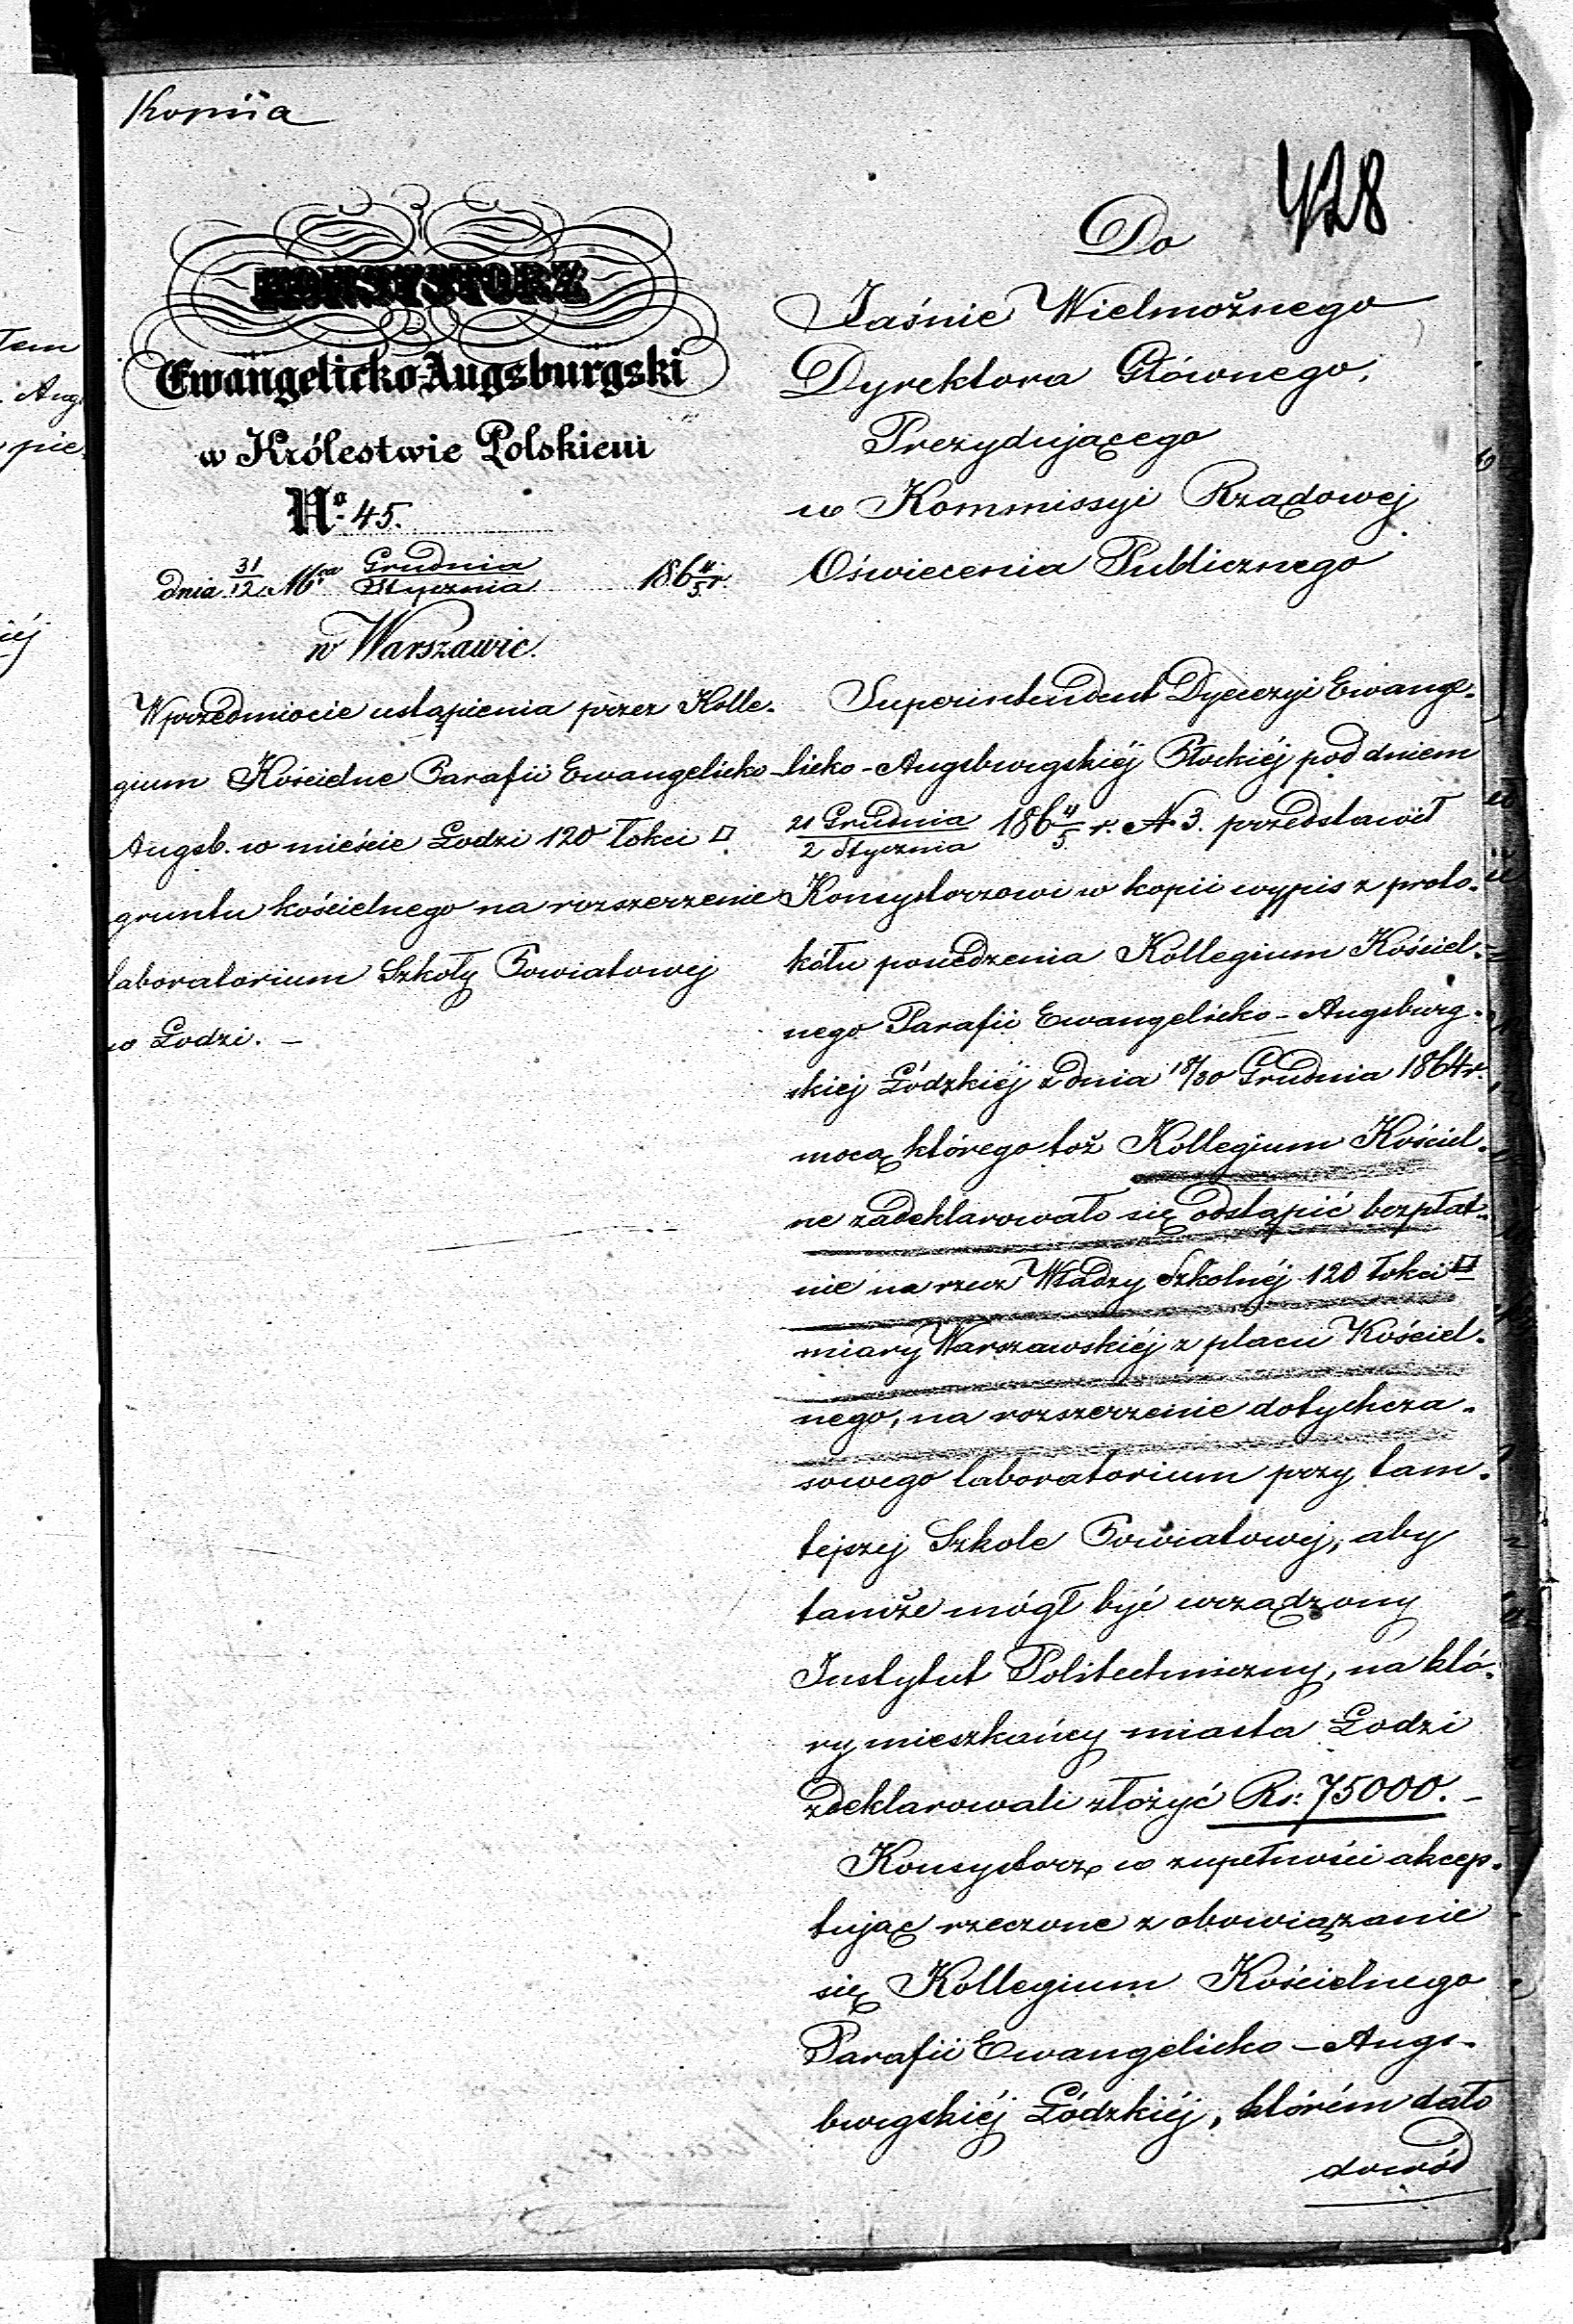 Kopiia
428
KONSYSTORZ
Ewangelicko-Augsburgski
w Królestwie Polskiem
No. 45.
dnia 31/12 Mca Grudnia/Stycznia 1864/5 r.
w Warszawie.
W przedmiocie ustąpienia przez Kolle-
gium Kościelne Parafii Ewangelicko
Augsb. w mieście Łodzi 120 łokci □
gruntu kościelnego na rozszerzenie
laboratorium Szkoły Powiatowej
w Łodzi. —
Do
Jaśnie Wielmożnego
Dyrektora Głównego,
Prezydującego
w Kommissyi Rządowej
Oświecenia Publicznego
Superintendent Dyecezyi Ewange-
licko-Augsburgskiéj Płockiéj pod dniem
21 Grudnia/2 Stycznia 1864/5 r. N 3. przedstawił
Konsystorzowi w kopii wypis z proto-
kółu posiedzenia Kollegium Kościel-
nego Parafii Ewangelicko-Augsburg-
skiej Łódzkiéj z dnia 18/30 Grudnia 1864 r.
mocą którego toż Kollegium Kościel-
ne zadeklarowało się odstąpić bezpłat-
nie na rzecz Władzy Szkolnéj 120 łokci □
miary Warszawskiéj z placu Kościel-
nego, na rozszerzenie dotychcza-
sowego laboratorium przy tam-
tejszej Szkole Powiatowej, aby
tamże mógł być urządzony
Instytut Politechniczny, na któ-
ry mieszkańcy miasta Łodzi
zdeklarowali złożyć Rs: 75000. —
Konsystorz w zupełności akcep-
tując rzeczone zobowiązanie
się Kollegium Kościelnego
Parafii Ewangelicko-Augs-
burgskiéj Łódzkiéj, którém dało
dowód